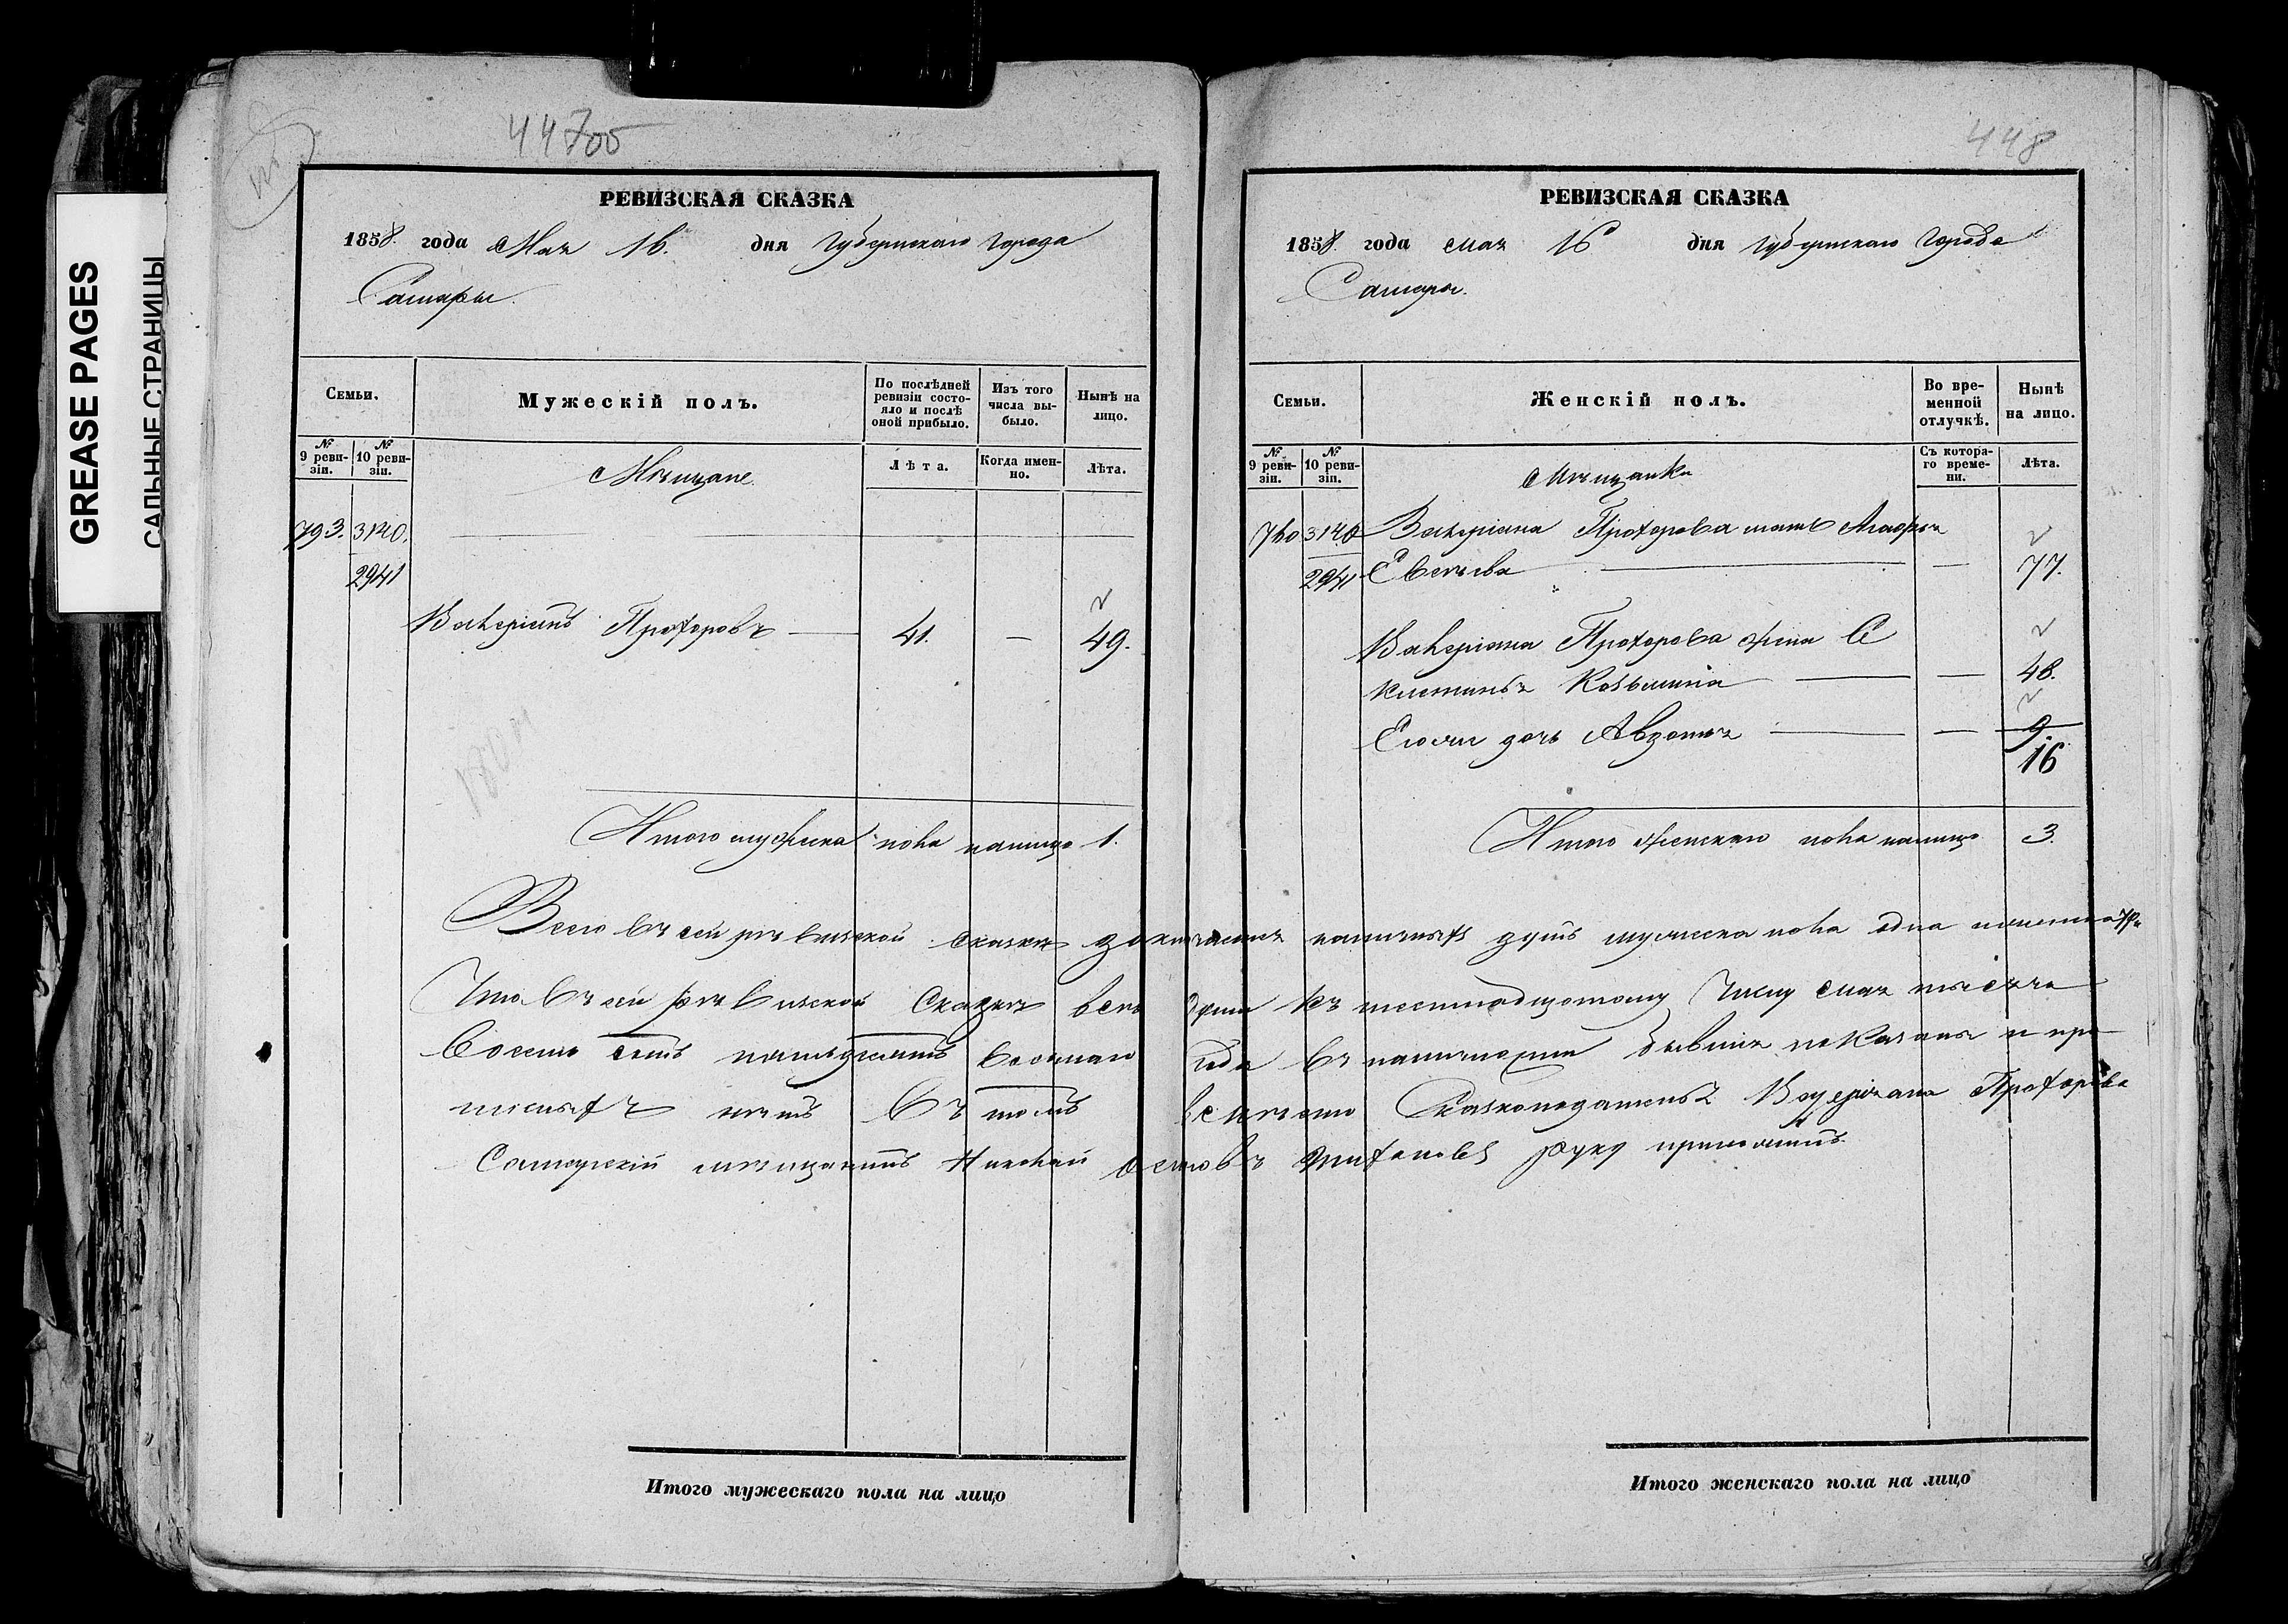 GREASE PAGES
САЛЬНЫЕ СТРАНИЦЫ
РЕВИЗСКАЯ СКАЗКА
1858. года Мая 16. дня Губернскаго города
Самары.
Семьи.
Мужескій полъ.
По послѣдней ревизіи состояло и послѣ оной прибыло.
Изъ того числа выбыло.
Нынѣ на лицо.
№ 9 ревизіи.
№ 10 ревизіи.
Мѣщане.
Лѣта.
Когда именно.
Лѣта.
793. 3140.
2941
Валеріанъ Прохоровъ — 41. — 49.
Итого мужска пола налицо 1.
Итого мужескаго пола на лицо
448
РЕВИЗСКАЯ СКАЗКА
1858. года мая 16 дня Губернскаго города
Самары.
Семьи.
Женскій полъ.
Во временной отлучкѣ.
Нынѣ на лицо.
№ 9 ревизіи.
№ 10 ревизіи.
Мѣщанки
Съ котораго времени.
Лѣта.
3140 Валеріана Прохорова мать
2941 — — 77.
Валеріана Прохорова жена
Козьмина — — 48.
дочь Авдотья — — 9.
16
Итого женскаго пола налицо 3.
Всего въ сей ревизской сказкѣ наличныхъ душъ мужеска пола одна
Что въ сей ревизской Сказкѣ всѣ души къ шестнадцатому числу мая тысяча
восемь сотъ пятьдесятъ восьмаго года въ наличности бывшія показаны и про
писныхъ нѣтъ въ томъ вмѣсто Сказкоподателя Валеріана Прохорова
Самарскій мѣщанинъ Николай руку приложилъ.
Итого женскаго пола на лицо